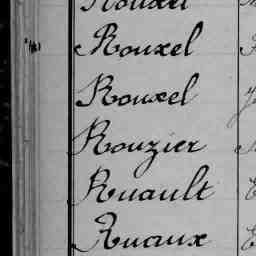 Rouxel
Rouxel
Rouxel
Rouzier
Ruault
Ruaux